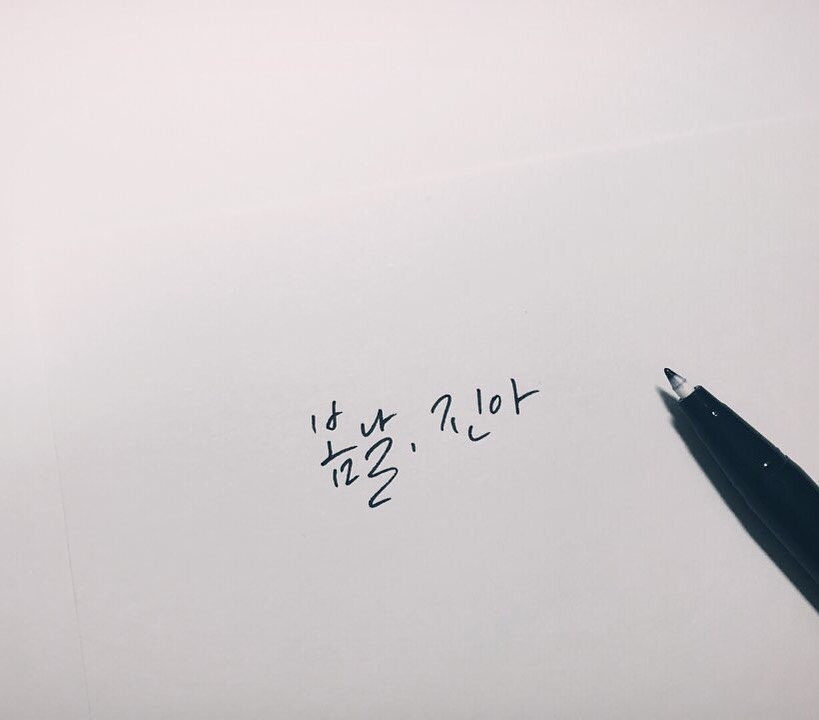 봄날, 진아